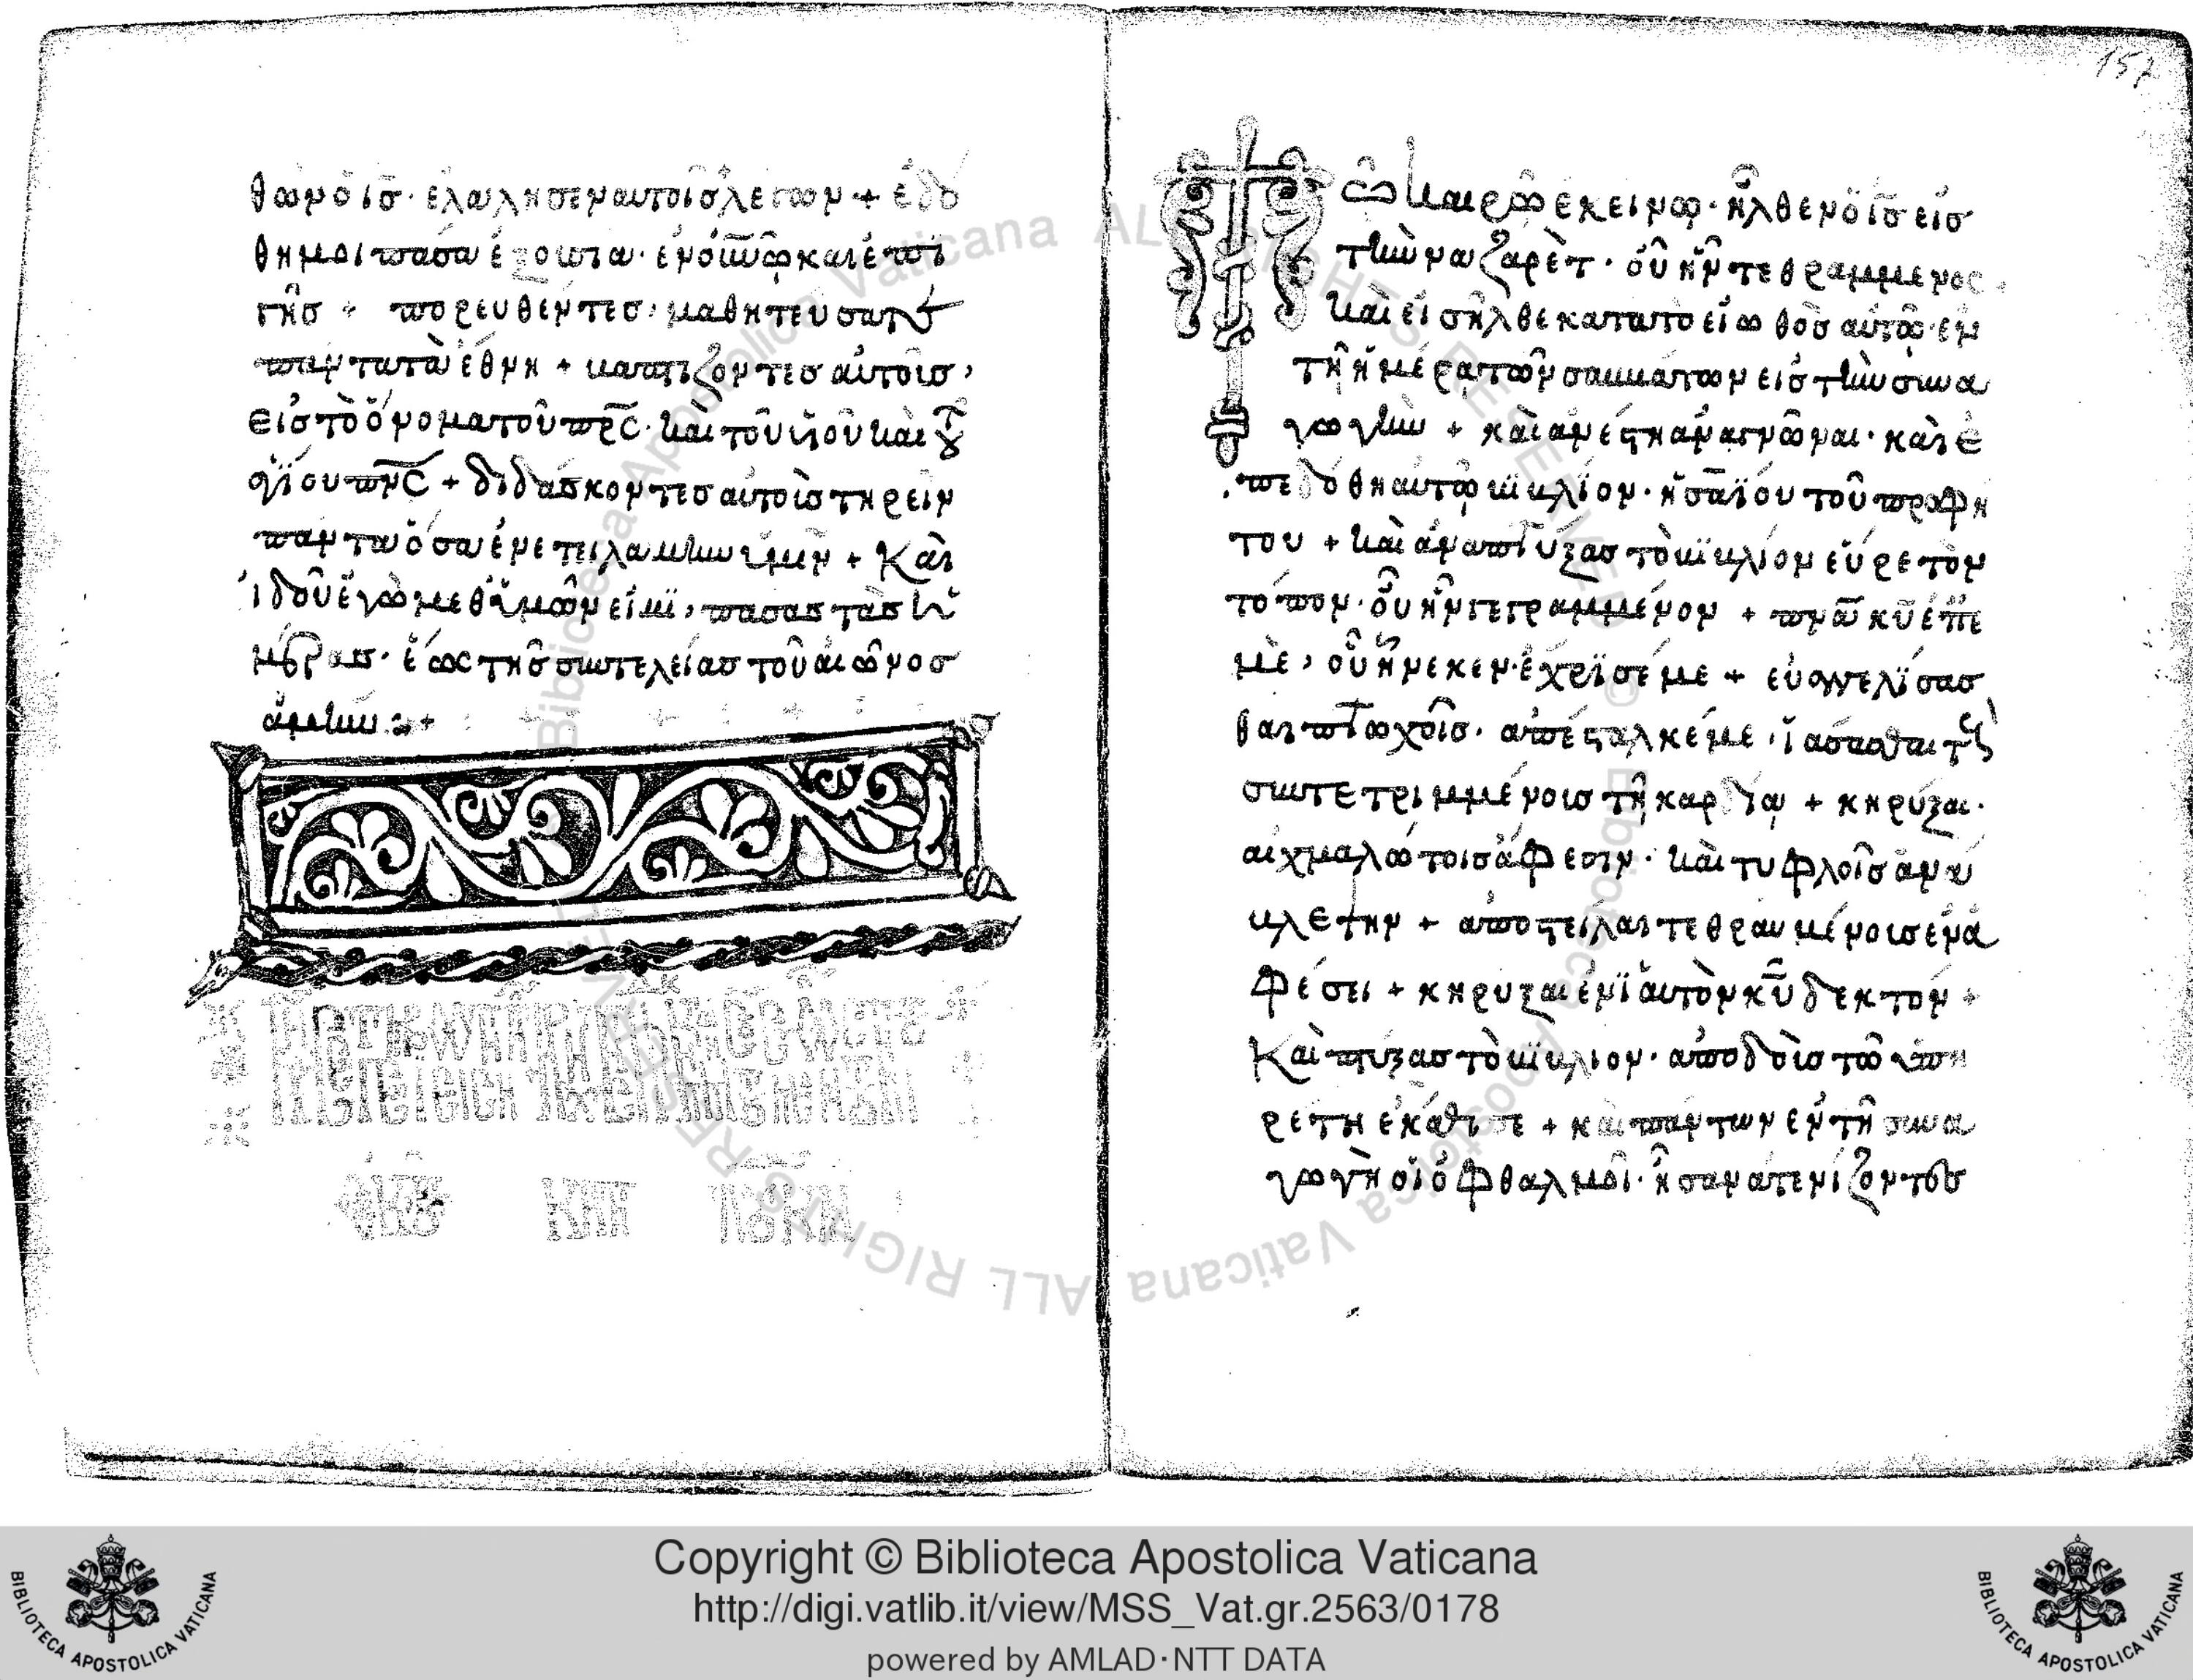 θων ὁ ις̅· ἐλάλησεν αυτοῖς λέγων + ἐδό
θη μοι πᾶσα ἐξουσία· ἐν οὐν̅ῶ καὶ ἐπὶ
γῆς + πορευθέντες· μαθητεύσατε
πάντα τὰ ἔθνη + βαπτίζοντες αὐτοὺς,
εἰς τὸ ὄνομα τοῦ πρ̅ς· καὶ τοῦ υἱοῦ καὶ τοῦ
ἁγίου πν̅ς + διδάσκοντες αὐτοὺς τηρεῖν
πάντα ὅσα ἐνετειλάμην ὑμῖν + Καὶ
ἰδοῦ ἐγὼ μεθ ὑμῶν εἰμὶ, πάσας τὰς ἡ
μέρας· ἕως τῆς συντελείας τοῦ αἰῶνος
ἀμήν :+
157
Τῶ καιρῶ ἐκείνω· ἦλθεν ὁ ις̅ εἰς
τὴν ναζαρὲτ· οὗ ἦν τεθραμμένος
καὶ εἰσῆλθε κατα τὸ εἰωθὸς αὐτῶ· ἐν
τῆ ἡμέρα τῶν σαββάτων εἰς τὴν συνα
γωγὴν + καὶ ἀνέστη ἀναγνῶναι· καὶ ἐ
πεδόθη αὐτῶ βιβλίον· ἠσαΐου τοῦ προφή
του + καὶ ἀναπτύξας τὸ βιβλίον εὗρε τὸν
τόπον· οὗ ἦν γεγραμμένον + πν̅α κ̅υ ἐπ ε
μὲ, οὗ ἥνεκεν ἔχρϊσέ με + εὐαγγελίσασ
θαι πτωχοῖς· ἀπέσταλκέ με· ἰάσασθαι τοὺς
συντετριμμένοις τῆ καρδία + κηρύξαι·
αἰχμαλώτοις ἄφεσιν· καὶ τυφλοῖς ἀνά
βλεψιν + ἀποστεῖλαι τεθραυμένοις ἐν ἀ
φέσει + κηρύξαι ἐνϊαυτὸν κ̅υ δεκτόν +
Καὶ πτύξας τὸ βιβλίον· ἀποδοὺς τῶ ὑπη
ρέτη ἐκάθισε + καὶ πάντων ἐν τῆ συνα
γωγῆ οἱ ὀφθαλμοὶ· ἦσαν ἀτενίζοντες
Copyright © Biblioteca Apostolica Vaticana
http://digi.vatlib.it/view/MSS_Vat.gr.2563/0178
powered by AMLAD·NTT DATA
BIBLIOTECA APOSTOLICA VATICANA
BIBLIOTECA APOSTOLICA VATICANA